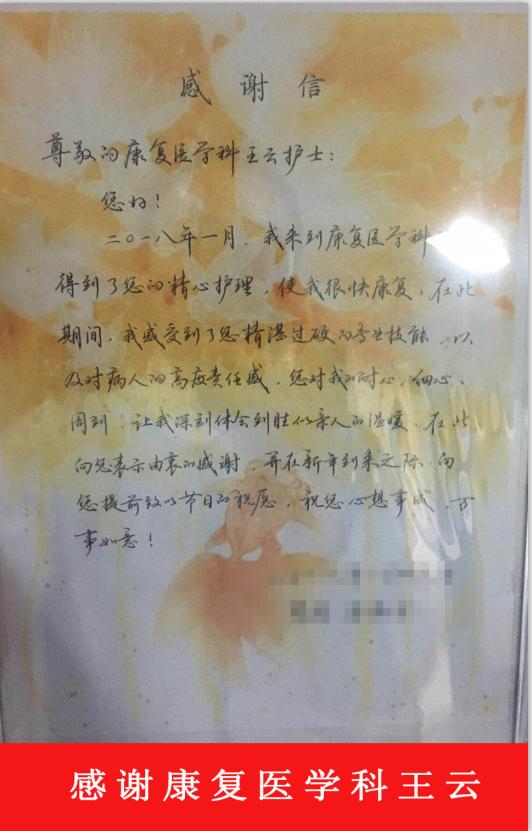 感谢信
尊敬的康复医学科王云护士：
您好！
二〇一八年一月，我来到康复医学科，
得到了您的精心护理，使我很快康复，在此
期间，我感受到了您精湛过硬的专业技能，以
及对病人的高度责任感，您对我的耐心，细心、
周到，让我深刻体会到胜似亲人的温暖，在此
向您表示由衷的感谢，并在新年到来之际，向
您提前致以节日的祝愿，祝您心想事成，万
事如意！
感谢康复医学科王云